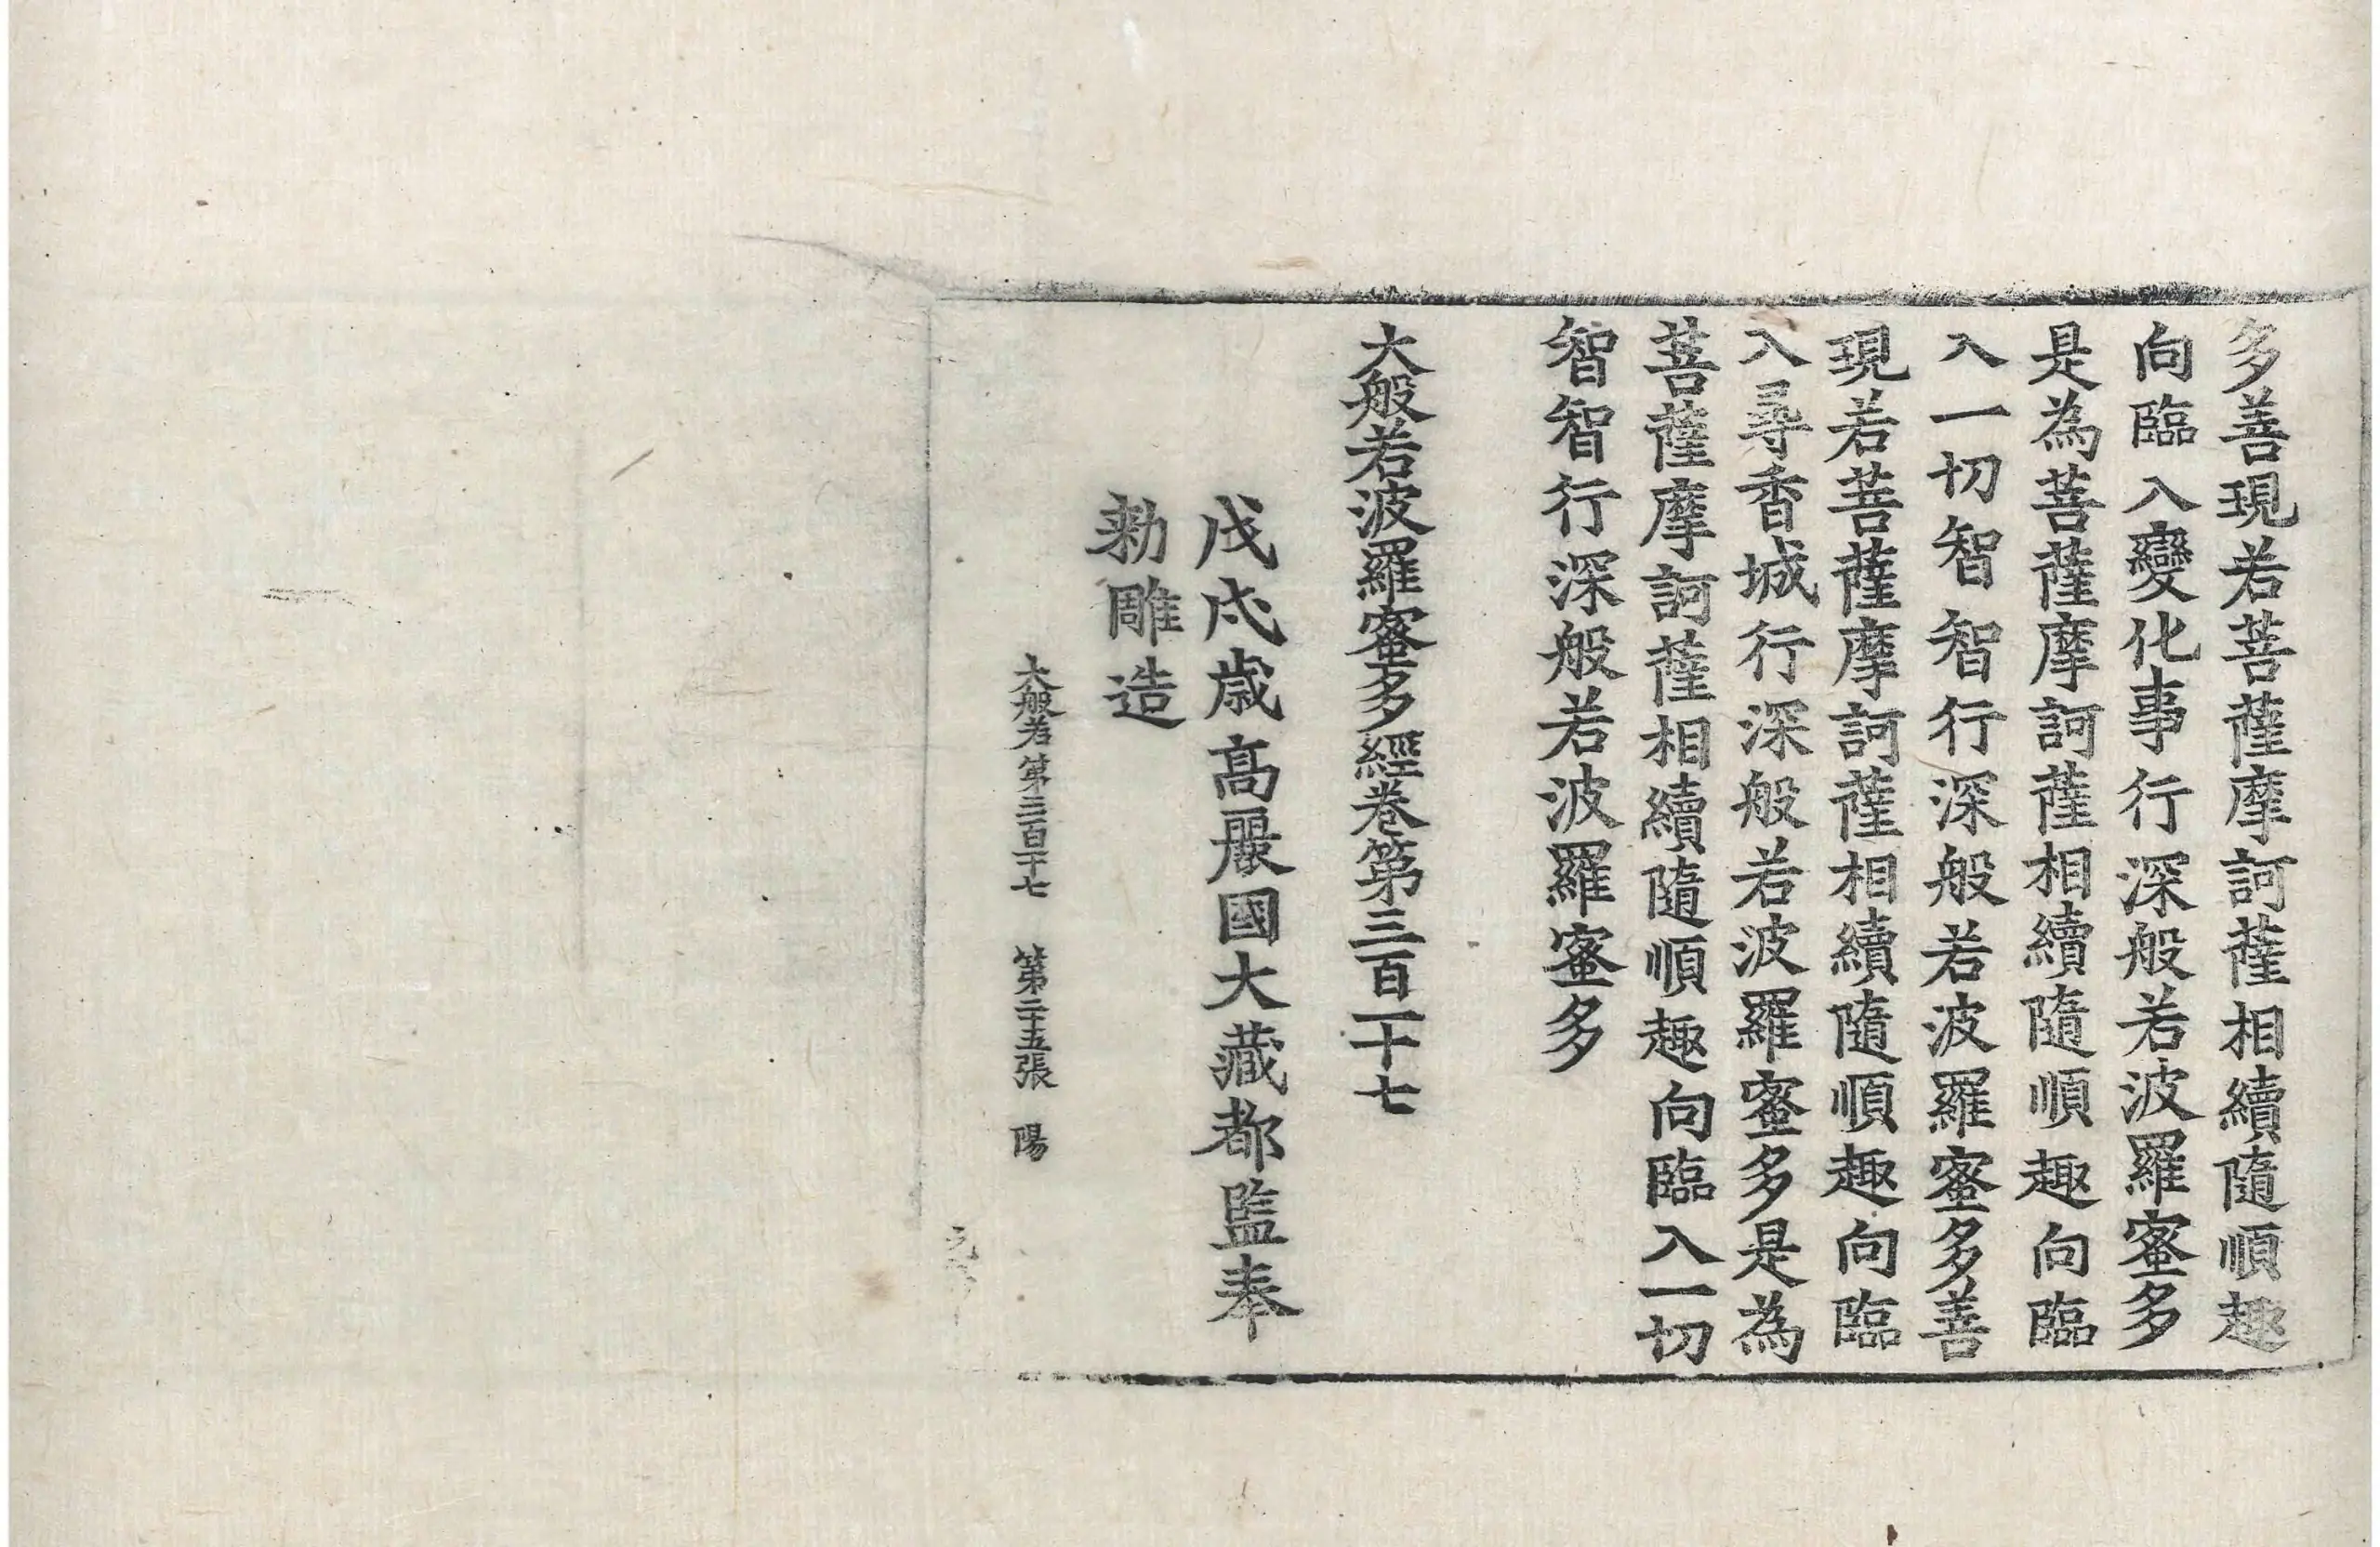 多善現若菩薩摩訶薩相續隨順趣
向臨入變化事行深般若波羅蜜多
是為菩薩摩訶薩相續隨順趣向臨
入一切智智行深般若波羅蜜多善
現若菩薩摩訶薩相續隨順趣向臨
入尋香城行深般若波羅蜜多是為
菩薩摩訶薩相續隨順趣向臨入一切
智智行深般若波羅蜜多
大般若波羅蜜多經卷第三百一十七
戊戌歲高麗國大藏都監奉
勑雕造
大般若第三百一十七 第二十五張 陽